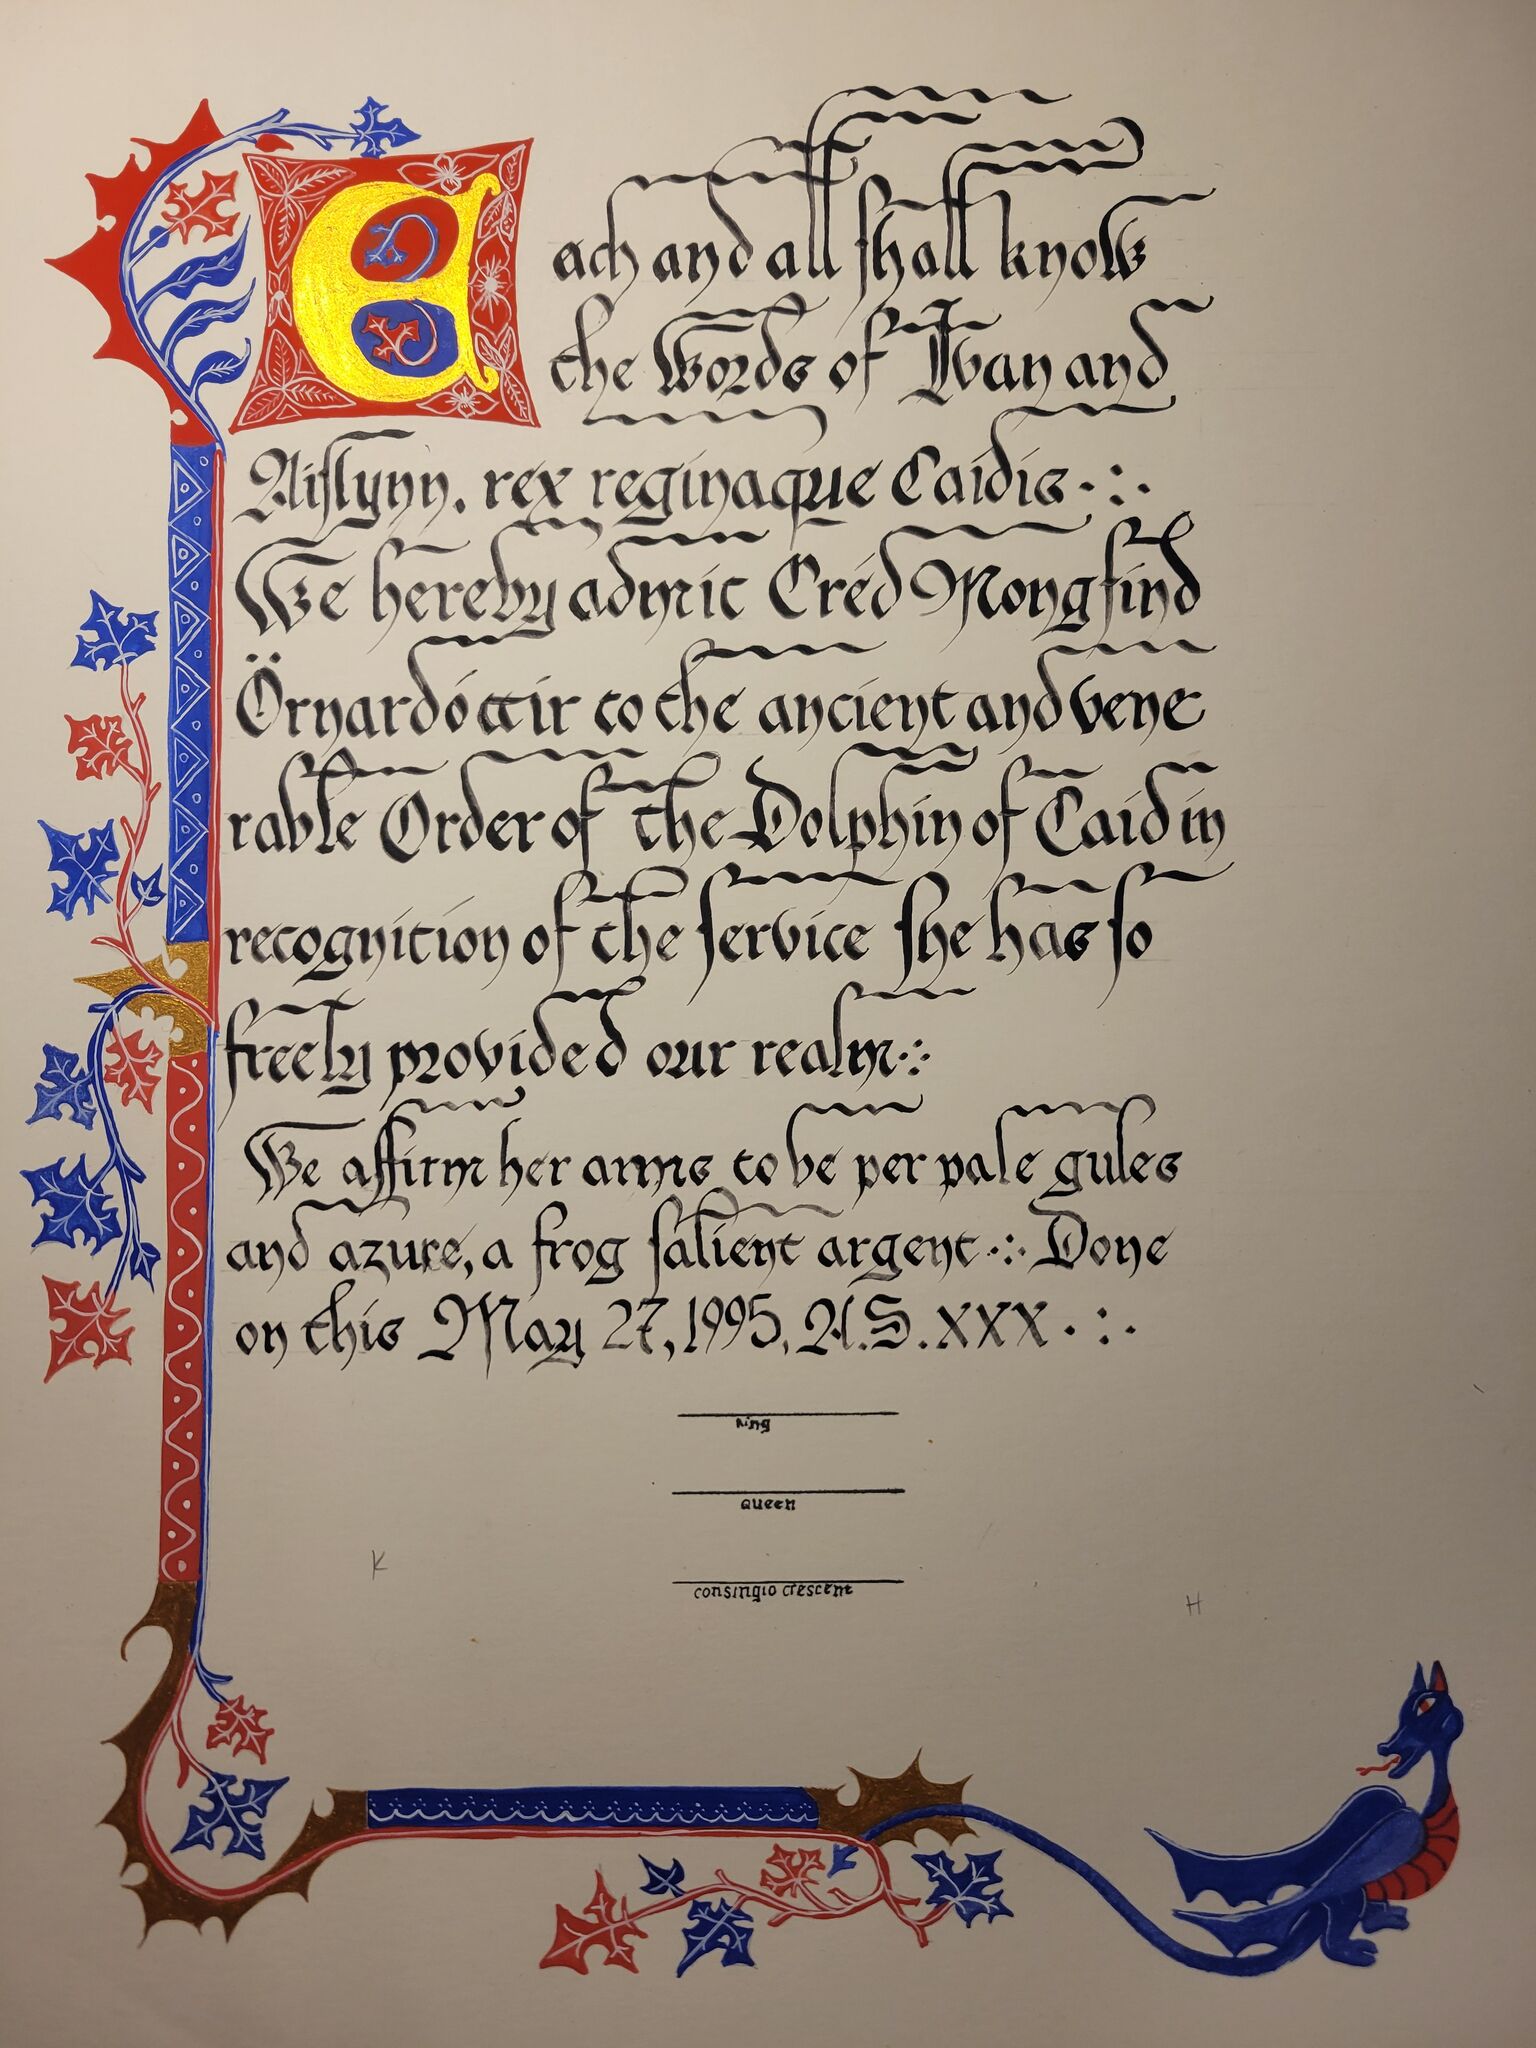 Each and all shall know
the words of Ivan and
Aislynn, rex reginaque Caidis ·:·
We hereby admit Créd Mongfind
Örnardóttir to the ancient and vene
rable Order of the Dolphin of Caid in
recognition of the service she has so
freely provided our realm ·:·
We affirm her arms to be per pale gules
and azure, a frog salient argent ·:· Done
on this May 27, 1995, A.S. XXX ·:·
king
queen
consingio crescent
K
H